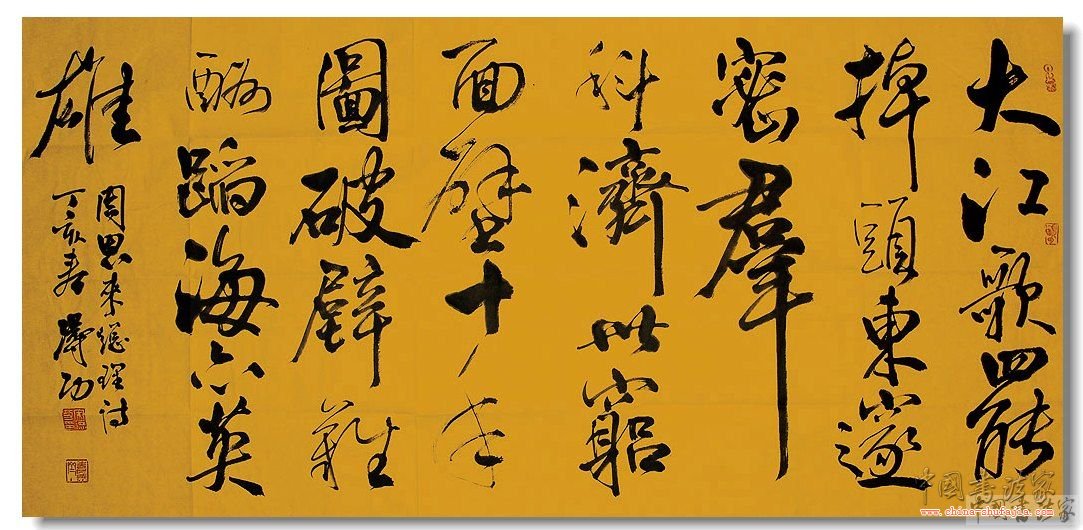 大江歌罷
掉頭東邃
密羣
科濟世窮
面壁十年
圖破壁難
酬蹈海亦英
雄
周恩來總理詩
丁亥春 功
中國書法家
www.china-shufajia.com